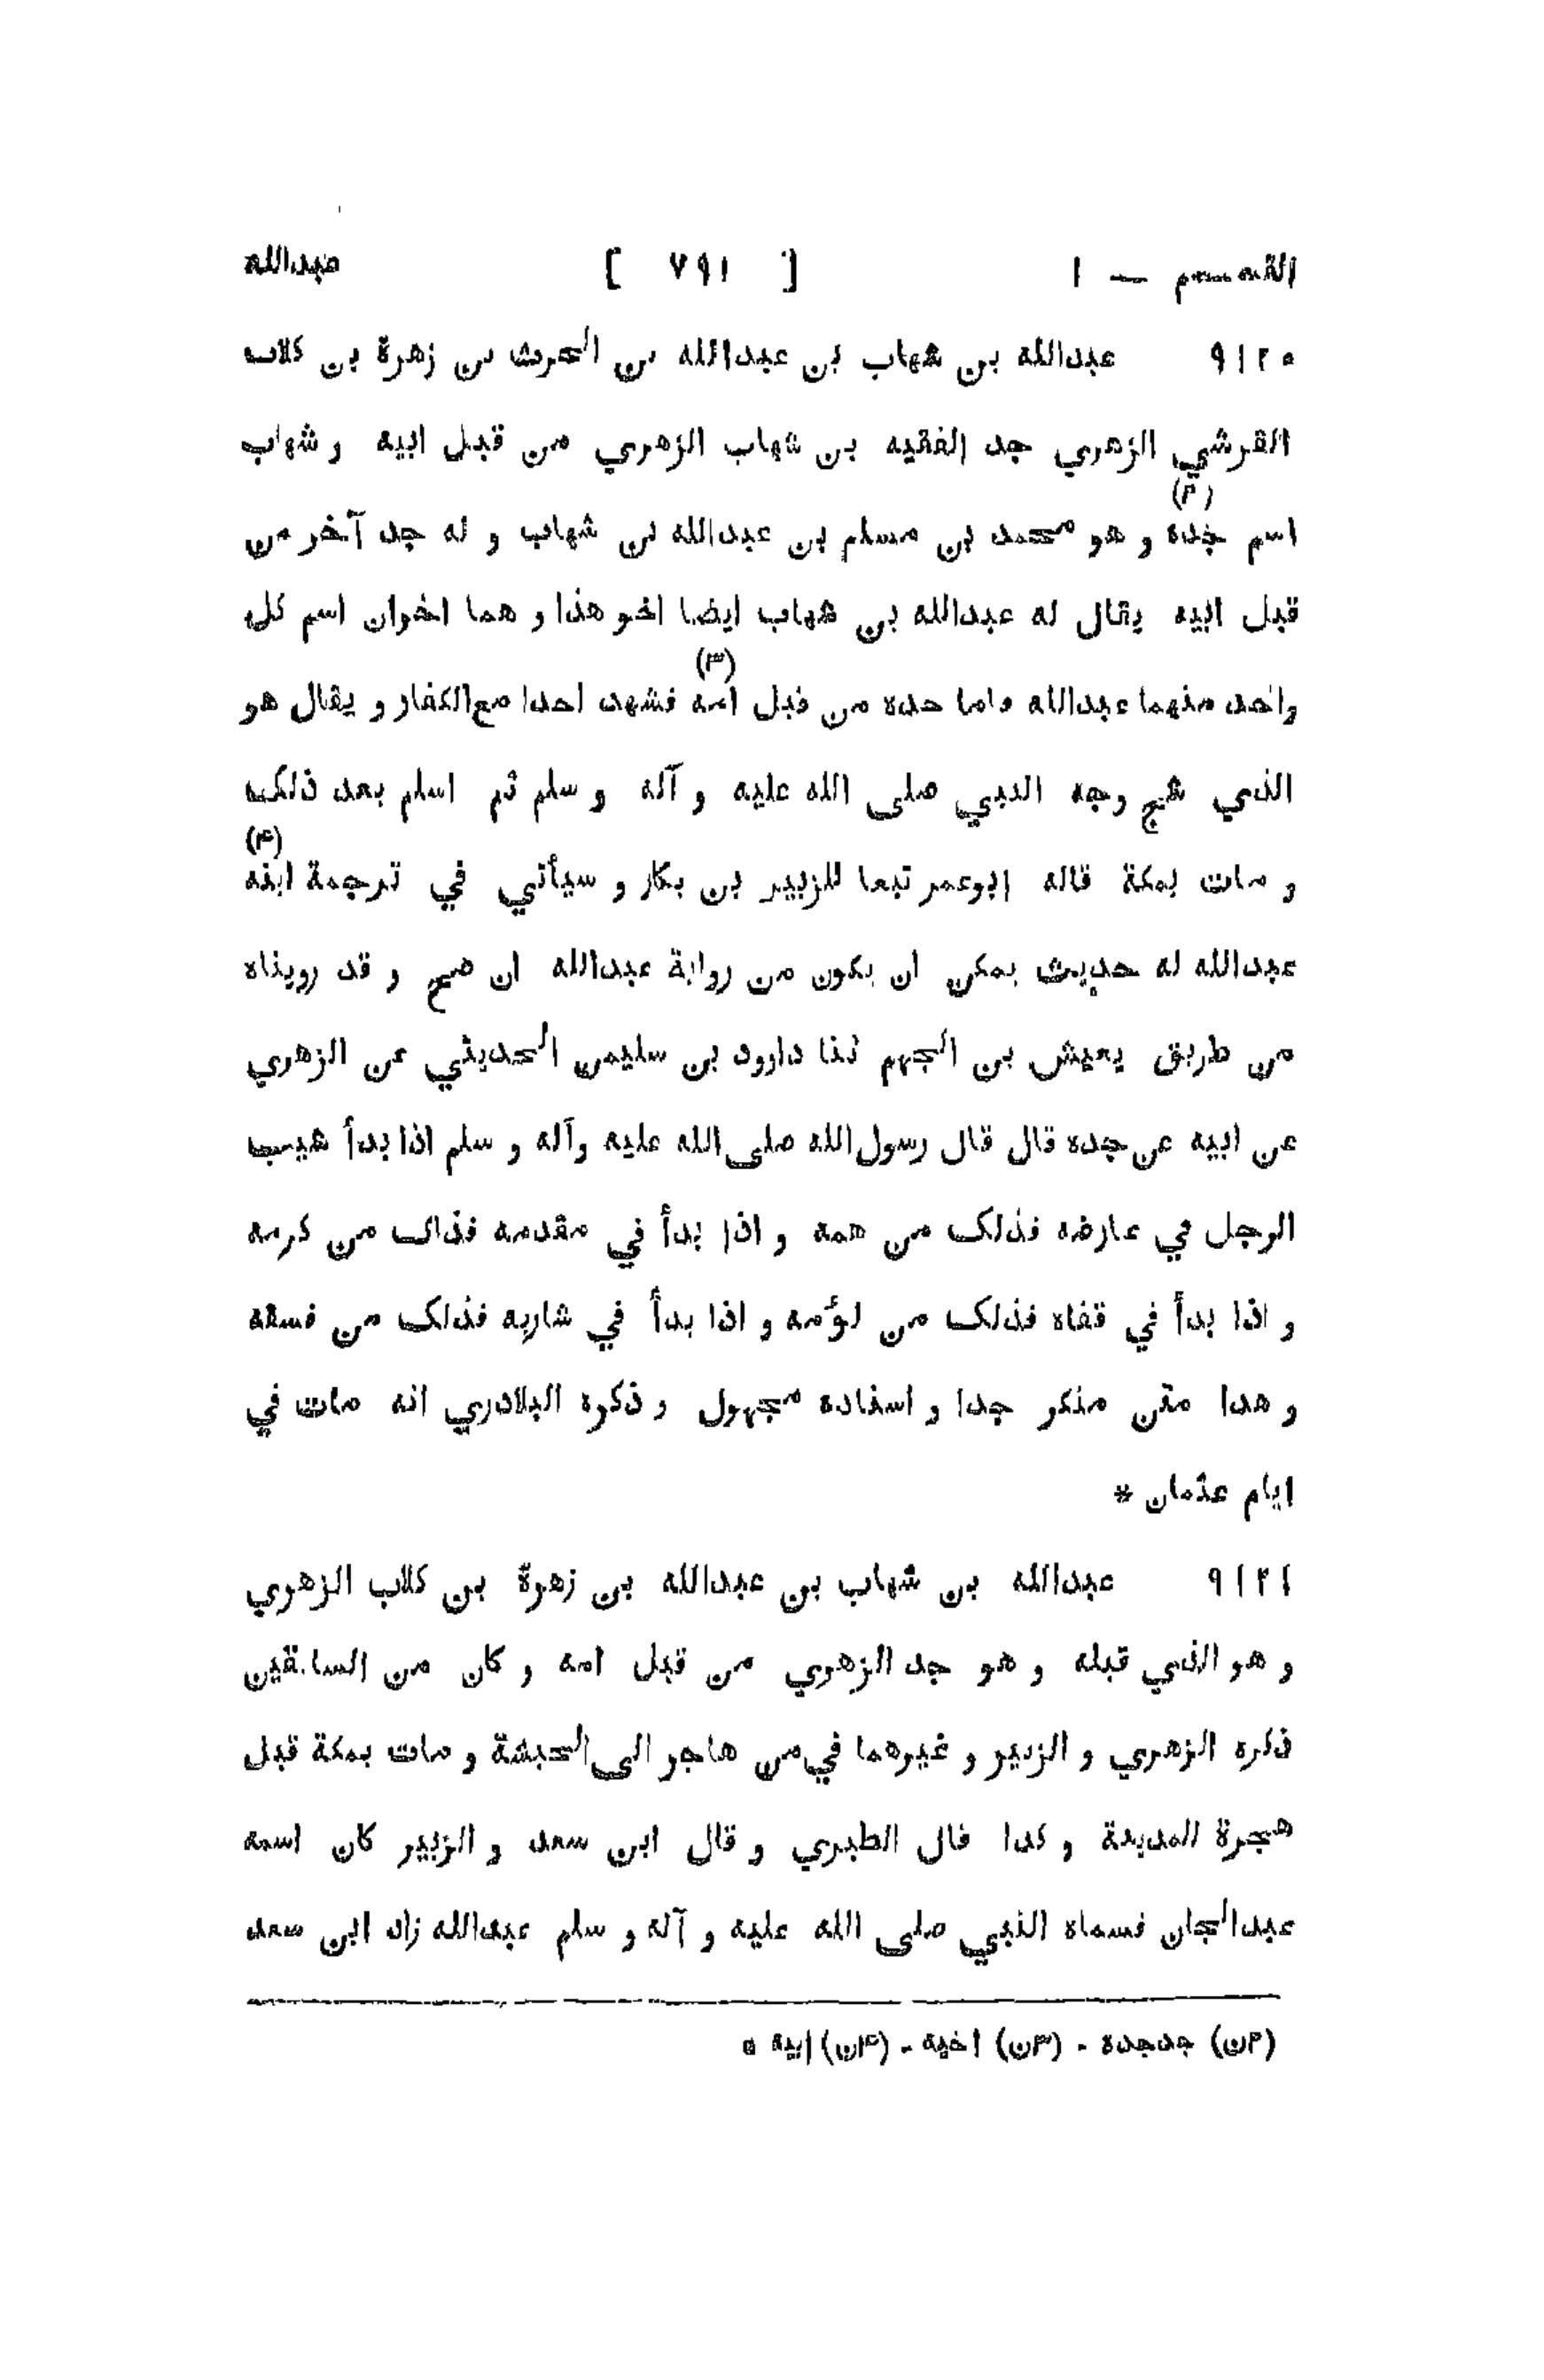 القسم — ١ [ ٧٩١ ] عبدالله
٩١٢٠ عبدالله بن شهاب بن عبدالله بن الحرث بن زهرة بن كلاب
القرشي الزهري جد الفقيه بن شهاب الزهري من قبل ابيه و شهاب
(٢)
اسم جده و هو محمد بن مسلم بن عبدالله بن شهاب و له جد آخر من
قبل ابيه يقال له عبدالله بن شهاب ايضا اخو هذا و هما اخوان اسم كل
(٣)
واحد منهما عبدالله واما جده من قبل امه فشهد احدا مع الكفار و يقال هو
الذي شج وجه النبي صلى الله عليه و آله و سلم ثم اسلم بعد ذلك
(۴)
و مات بمكة قاله ابوعمر تبعا للزبير بن بكار و سيأتي في ترجمة ابنه
عبدالله له حديث يمكن ان يكون من رواية عبدالله ان صح و قد رويناه
من طريق يعيش بن الجهم ثنا داوود بن سليمن الحديثي عن الزهري
عن ابيه عن جده قال قال رسول الله صلى الله عليه وآله و سلم اذا بدأ شيب
الرجل في عارضه فذلك من همه و اذا بدأ في مقدمه فذاك من كرمه
و اذا بدأ في قفاه فذلك من لؤمه و اذا بدأ في شاربه فذلك من فسقه
و هذا متن منكر جدا و اسناده مجهول و ذكره البلاذري انه مات في
ايام عثمان *
٩١٢١ عبدالله بن شهاب بن عبدالله بن زهرة بن كلاب الزهري
و هو الذي قبله و هو جد الزهري من قبل امه و كان من السابقين
ذكره الزهري و الزبير و غيرهما في من هاجر الى الحبشة و مات بمكة قبل
هجرة المدينة و كذا قال الطبري و قال ابن سعد و الزبير كان اسمه
عبدالجان فسماه النبي صلى الله عليه و آله و سلم عبدالله زاد ابن سعد
(٢ن) جدجده - (٣ن) اخيه - (۴ن) ابيه *